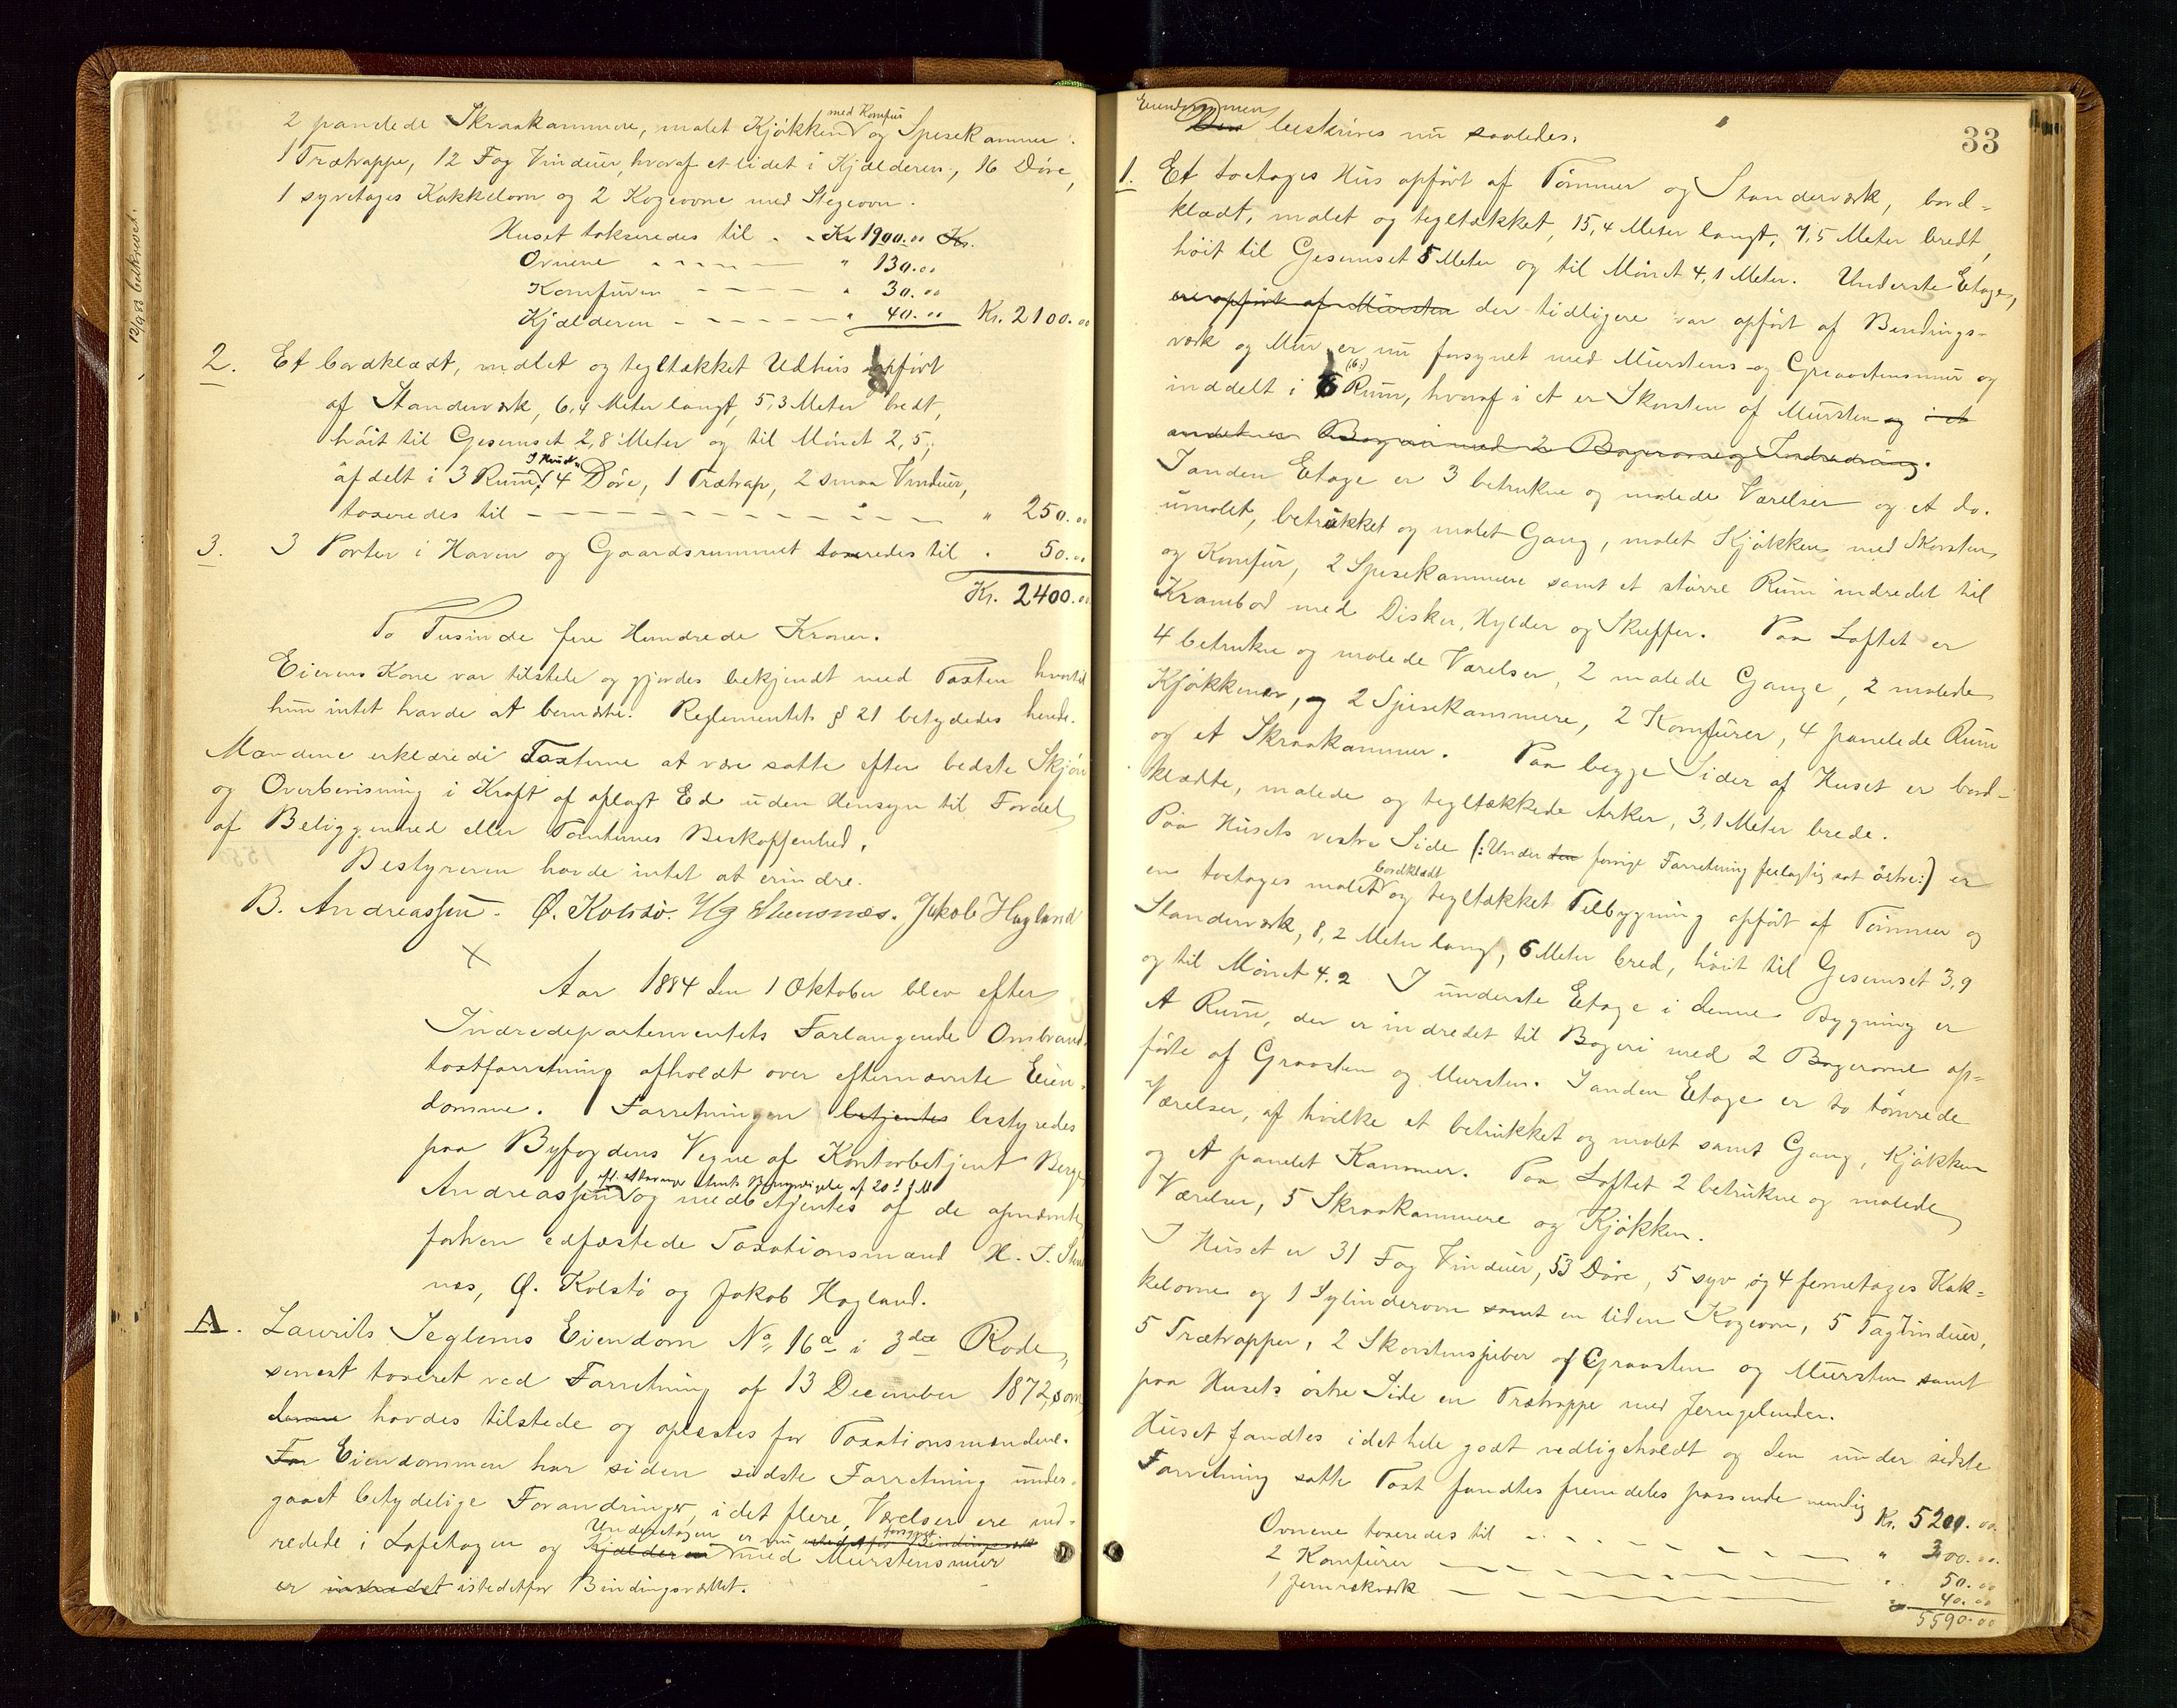 2 panelede Skraakammere, malet Kjøkken med Komfur og Spisekammer.
1 Trætrappe, 12 Fag Vinduer, hvoraf et lidet i Kjælderen, 16 Døre,
1 syvetages Kakkelovn og 2 Kogeovne med Stegeovn.
Huset takseredes til - - Kr 1900.00 Kr.
Ovnene - - - - " 130.00
Komfuren - - - - " 30.00
Kjælderen - - - - " 40.00 Kr. 2100.00
2. Et bordklædt, malet og tegltækket Udhus opført
af Standerværk, 6,4 Meter langt, 5,3 Meter bredt,
høit til Gesemset 2,8 Meter og til Mønet 2,5,
afdelt i 3 Rum. I Huset 4 Døre, 1 Trætrap, 2 smaa Vinduer,
taxeredes til - - - - - - - - - - " 250.00
3. 3 Porter i Haven og Gaardsrummet taxeredes til " 50.00
Kr. 2400.00
To Tusinde fire Hundrede Kroner.
Eierens Kone var tilstede og gjordes bekjendt med Taxten hvortil
hun intet havde at bemærke. Reglementets § 21 betydedes hende.
Mændene erklærede Taxterne at være satte efter bedste Skjøn
og Overbevisning i Kraft af aflagt Ed uden Hensyn til Fordel
af Beliggenhed eller Tomternes Beskaffenhed.
Bestyreren havde intet at erindre.
B. Andreassen. Ø. Kolstø. HJ Steensnæs. Jakob Hagland
X
Aar 1884 den 1 Oktober blev efter
Indredepartementets Forlangende Ombrand-
taxtforretning afholdt over efternævnte Eien-
domme. Forretningen betjentes bestyredes
paa Byfogdens Vegne af Kontorbetjent Berge
Andreassen og medbetjentes af de opnævnte
forhen edfæstede Taxationsmænd H. J. Steens-
næs, Ø. Kolstø og Jakob Hagland.
A. Laurits Seglems Eiendom No 16a i 3de Rode,
senest taxeret ved Forretning af 13 December 1872, som
denne havdes tilstede og oplæstes for Taxationsmændene.
For Eiendommen har siden sidste Forretning under-
gaaet betydelige Forandringer, idet flere Værelser ere ind-
redede i Loftetagen og Kjælderen Underetagen er nu forsynet istedetfor Bindingsværk med Murstensmur
er indredet istedetfor Bindingsværket.
12/9 83 bekræftet.
33
Eiendommen
Den beskrives nu saaledes.
1. Et toetages Hus opført af Tømmer og Standerværk, bord-
klædt, malet og tegltækket, 15,4 Meter langt, 7,5 Meter bredt,
høit til Gesemset 5 Meter og til Mønet 4,1 Meter. Underste Etage,
er opført af Mursten der tidligere var opført af Bindings-
værk og Mur, er nu forsynet med Murstens- og Graastensmur og
inddelt i 6 (6:) Rum, hvoraf i et er Skorsten af Mursten og i et
andet er Bageri med 2 Bagerovne og Indredning.
I anden Etage er 3 betrukne og malede Værelser og et do.
umalet, betrækket og malet Gang, malet Kjøkken med Skorsten
og Komfur, 2 Spisekammere samt et større Rum indredet til
Krambod med Disker, Hylder og Skuffer. Paa Loftet er
4 betrukne og malede Værelser, 2 malede Gange, 2 malede
Kjøkkener, og 2 Spisekammere, 2 Komfurer, 4 panelede Rum
og et Skraakammer. Paa begge Sider af Huset er bord-
klædte, malede og tegltækkede Arker, 3,1 Meter brede.
Paa Husets vestre Side (: Under den forrige Forretning feilagtig sat østre:) er
en toetages malet bordklædt og tegltækket Tilbygning opført af Tømmer og
Standerværk, 8,2 Meter lang, 6 Meter bred, høit til Gesemset 3,9
og til Mønet 4.2 I underste Etage i denne Bygning er
et Rum, der er indredet til Bageri med 2 Bagerovne op-
førte af Graasten og Mursten. I anden Etage er to tømrede
Værelser, af hvilke et betrukket og malet samt Gang, Kjøkken
og et panelet Kammer. Paa Loftet 2 betrukne og malede
Værelser, 5 Skraakammere og Kjøkken.
I Huset er 31 Fag Vinduer, 53 Døre, 5 syv og 4 femetages Kak-
kelovne og 1 Sylinderovn samt en liden Kogeovn, 5 Tagvinduer,
5 Trætrapper, 2 Skorstenspiber af Graasten og Mursten samt
paa Husets østre Side en Trætrappe med Jerngelender.
Huset fandtes i det hele godt vedligeholdt og den under sidste
Forretning satte Taxt fandtes fremdeles passende nemlig Kr. 5200.00
Ovnene taxeredes til - - - - " 300.00
2 Komfurer - - - - " 50.00
1 Jernrækværk - - - - " 40.00
5590.00